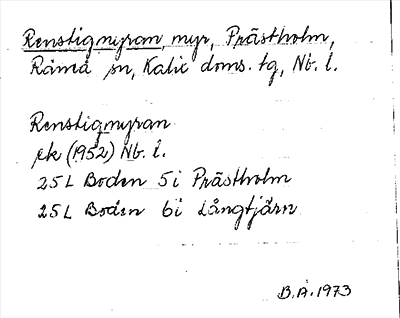 Renstigmyran, myr, Prästholm,
Råneå sn, Kalix doms. tg, Nb. l.
Renstigmyran
ek (1952) Nb. l.
25L Boden 5i Prästholm
25L Boden 6i Långtjärn
B.Å. 1973